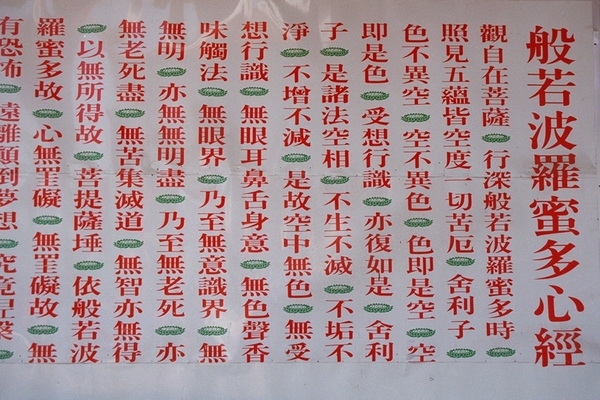 般若波羅蜜多心經
觀自在菩薩 行深般若波羅蜜多時
照見五蘊皆空度一切苦厄 舍利子
色不異空 空不異色 色即是空 空
即是色 受想行識 亦復如是 舍利
子 是諸法空相 不生不滅 不垢不
淨 不增不減 是故空中無色 無受
想行識 無眼耳鼻舌身意 無色聲香
味觸法 無眼界 乃至無意識界 無
無明 亦無無明盡 乃至無老死 亦
無老死盡 無苦集滅道 無智亦無得
以無所得故 菩提薩埵 依般若波
羅蜜多故 心無罣礙 無罣礙故 無
有恐怖 遠離顛倒夢想 究竟涅槃